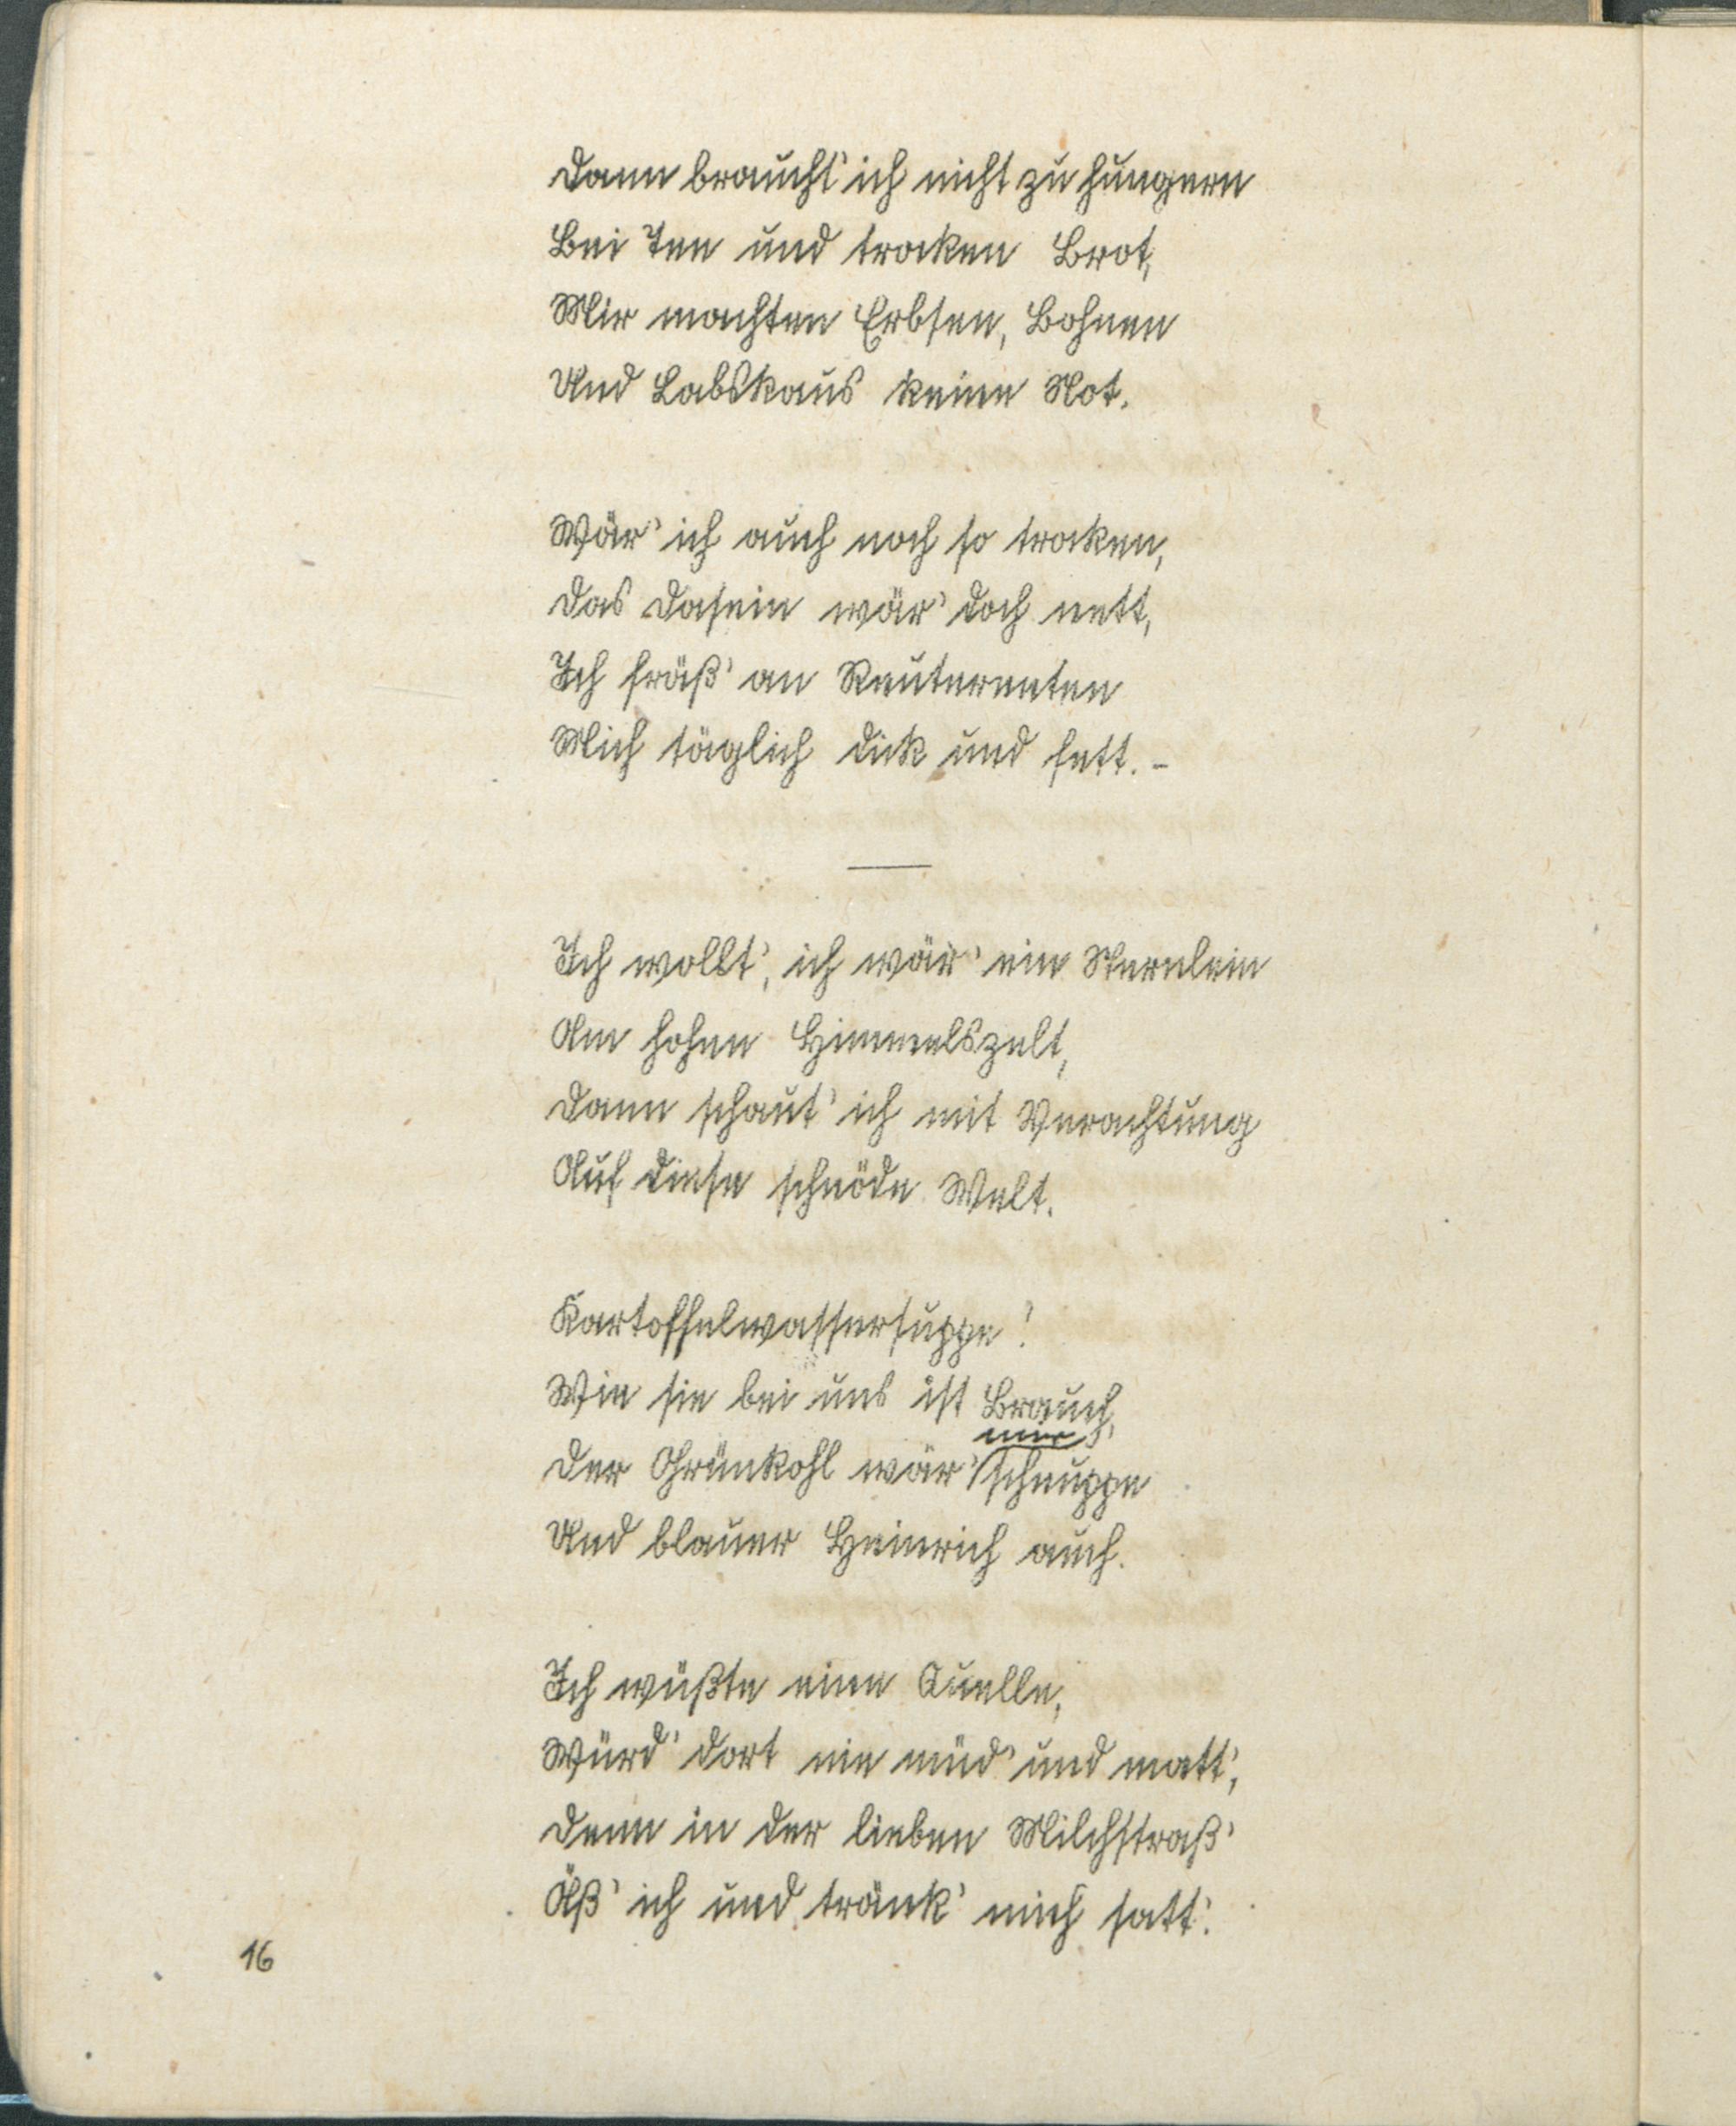 Dann braucht' ich nicht zu hungern
Bei Tee und trocken Brot,
Mir machten Erbsen, Bohnen
Und Labskaus keine Not.
Wär' ich auch noch so trocken,
Das Dasein wär' doch nett,
Ich fräß' an Reuterenten
Mich täglich dick und fett. -
Ich wollt', ich wär' ein Sternlein
Am hohen Himmelszelt,
Dann schaut' ich mit Verachtung
Auf diese schnöde Welt.
Kartoffelwassersuppe!
Wie sie bei uns ist Brauch,
Der Grünkohl wär' mir schnuppe
Und blauer Heinrich auch.
Ich wüßte eine Quelle,
Würd' dort nie müd' und matt',
Denn in der lieben Milchstraß'
Äß' ich und tränk' mich satt'.
16